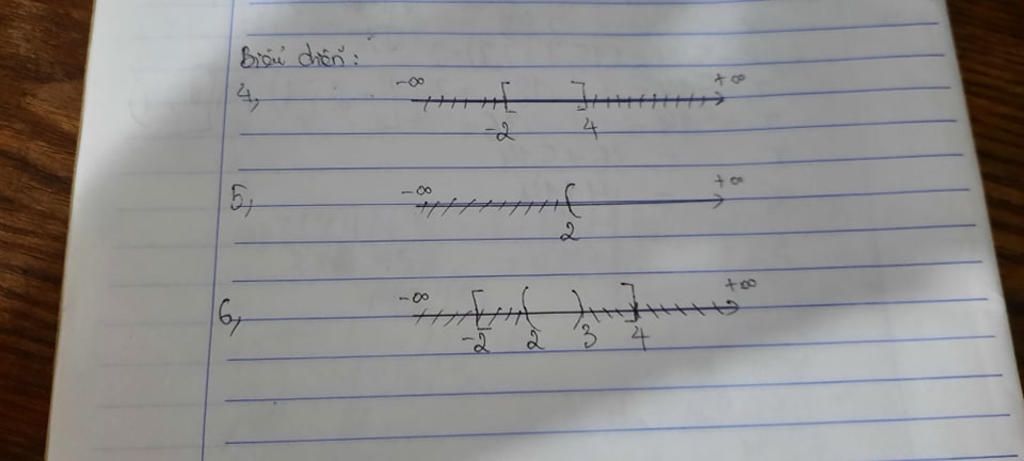 Biểu diễn:
4, -∞ [ ] +∞
-2 4
5, -∞ ( +∞
2
6, -∞ [ ( ) ] +∞
-2 2 3 4